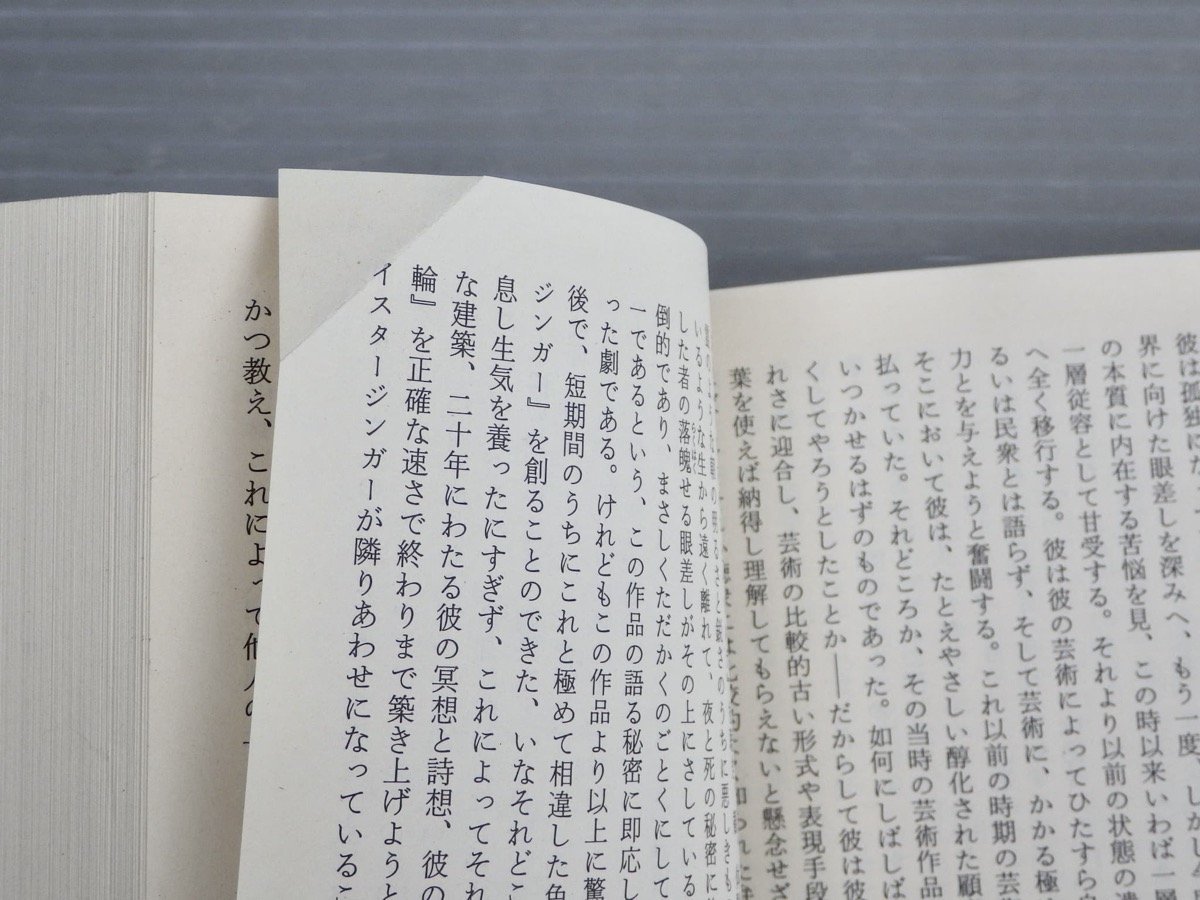 彼は孤独
界に向けた眼差しを深みへ、もう一度、しかし
の本質に内在する苦悩を見、この時以来いわば一層
一層従容として甘受する。それより以前の状態の
へ全く移行する。彼は彼の芸術によってひたすら
るいは民衆とは語らず、そして芸術に、かかる極
力とを与えようと奮闘する。これ以前の時期の芸
そこにおいて彼は、たとえやさしい醇化された顧
払っていた。それどころか、その当時の芸術作品
いつかせるはずのものであった。如何にしばしば
くしてやろうとしたことか――だからして彼は彼
れさに迎合し、芸術の比較的古い形式や表現手段
葉を使えば納得し理解してもらえないと懸念せざ
のうちに悪しきも
いるような生から遠く離れて、夜と死の秘密に
した者の落魄せる眼差しがその上にさしている
倒的であり、まさしくただかくのごとくにして
一であるという、この作品の語る秘密に即応し
った劇である。けれどもこの作品より以上に驚
後で、短期間のうちにこれと極めて相違した色
ジンガー』を創ることのできた、いなそれどこ
息し生気を養ったにすぎず、これによってそれ
な建築、二十年にわたる彼の冥想と詩想、彼の
輪』を正確な速さで終わりまで築き上げようと
イスタージンガーが隣りあわせになっているこ
かつ教え、これによって他人の